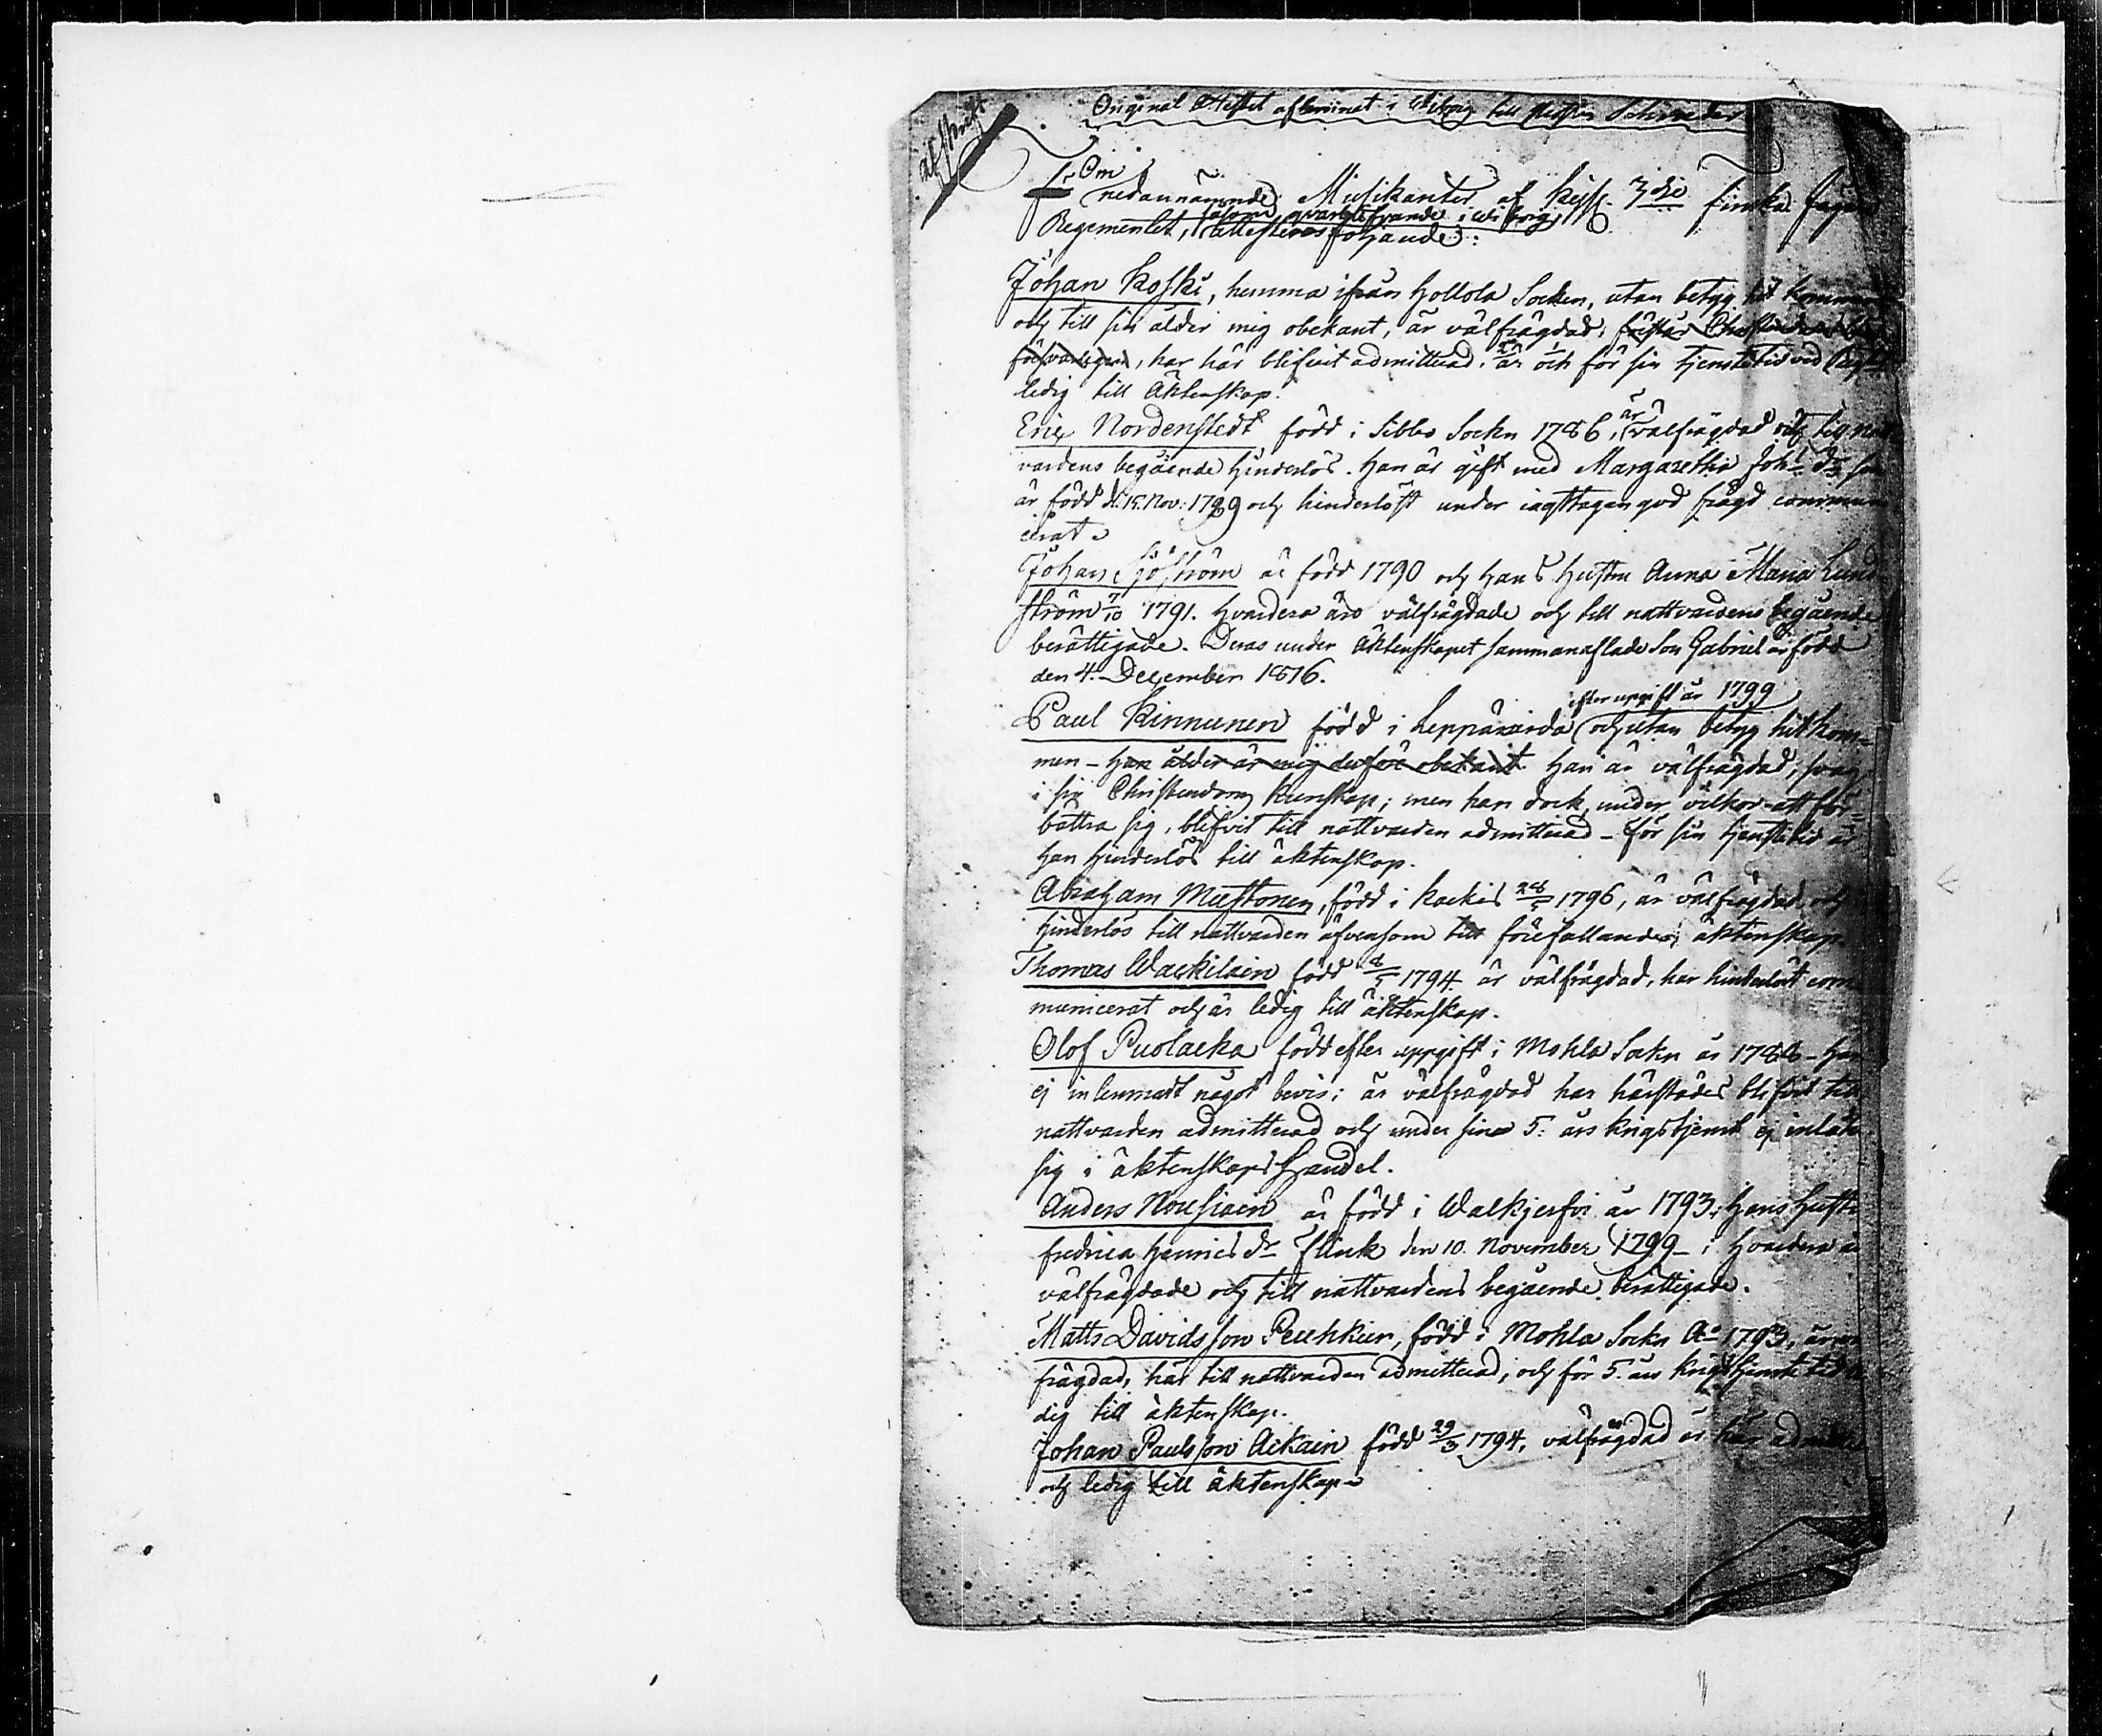 Afskrift
Original Attestet aflemnat i Wiborg till Pastor Schrœder
Om
nedannämnde Musikanter af Keyss. 3die finska Jägare
såsom qvarblifvande i Wiborg
Regementet, attesteras följande:
Johan Koski, hemma ifrån Hollola Socken, utan betyg hit kommen
och till sin ålder mig obekant, är välfrägdad, förstår Christendoms
försvarligen, har här blifvit admitterad, är och för sin tjenstetid ved Reg:t
ledig till Äktenskap.
Eric Nordenstedt född i Sibbo Sockn 1786, är välfrägdad och till natt
vardens begående hinderlös. Han är gift med Margaretha Joh:s dr som
är född d. 15. Nov: 1789 och hinderlöst under iagttagen god frägd commun
icerat.
Johan Sjöström är född 1790 och hans Hustru Anna Maria Lund
ström 7/10 1791. Hvardera äro välfrägdade och till nattvardens begående
berättigade. Deras under äktenskapet sammanaflade Son Gabriel är född
den 4. December 1816.
efter uppgift år 1799
Paul Kinnunen född i Leppävirda och utan betyg hit kom=
men - Han ålder är mig derför obekant. Han är välfrägdad, svag
i sin Christendoms kunskap; men han dock, under vilkor att för=
bättra sig, blifvit till nattvarden admitterad - för sin tjenstetid är
han hinderlös till äktenskap.
Abraham Mustonen, född i Kackis 28/5 1796, är välfrägdad och
hinderlös till nattvarden äfvensom till förefallande äktenskap.
Thomas Wackilain född 8/5 1794. är välfrägdad, har hinderlöst com
municerat och är ledig till äktenskap.
Olof Puolacka född efter uppgift i Mohla Sockn år 1788 - Har
ej inlemnatt något bevis; är välfrägdad har härstädes blifvit till
nattvarden admitterad och under sina 5. års krigstjenst ej inlåtit
sig i äktenskaps handel.
Anders Nousiain är född i Walkjerfvi år 1793; Hans Hustru
Fredrica Henrics dr Flink den 10. November 1799 - ; Hvardera är
välfrägdade och till nattvardens begående berättigade.
Matts Davidsson Peuhkur, född i Mohla Sockn Ao 1793, är väl
frägdad, här till nattvarden admitterad, och för 5. års krigstjenste tid le
dig till äktenskap.
Johan Paulsson Ackain född 29/3 1794, välfrägdad är här admitt
och ledig till äktenskap